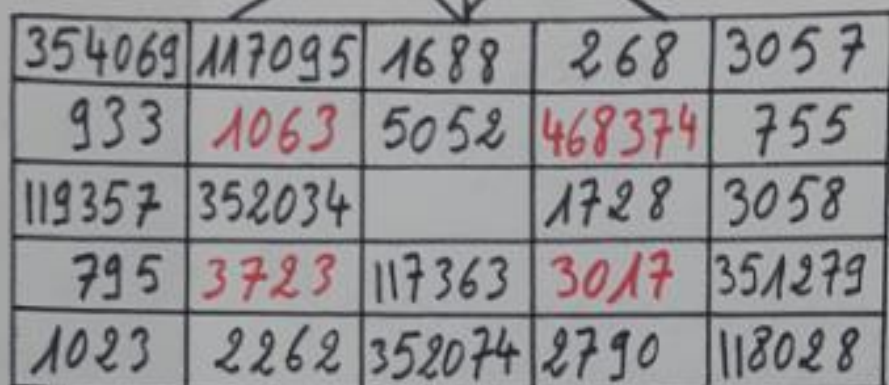 354069 117095 1688 268 3057
933 1063 5052 468374 755
119357 352034 1728 3058
795 3723 117363 3017 351279
1023 2262 352074 2790 118028